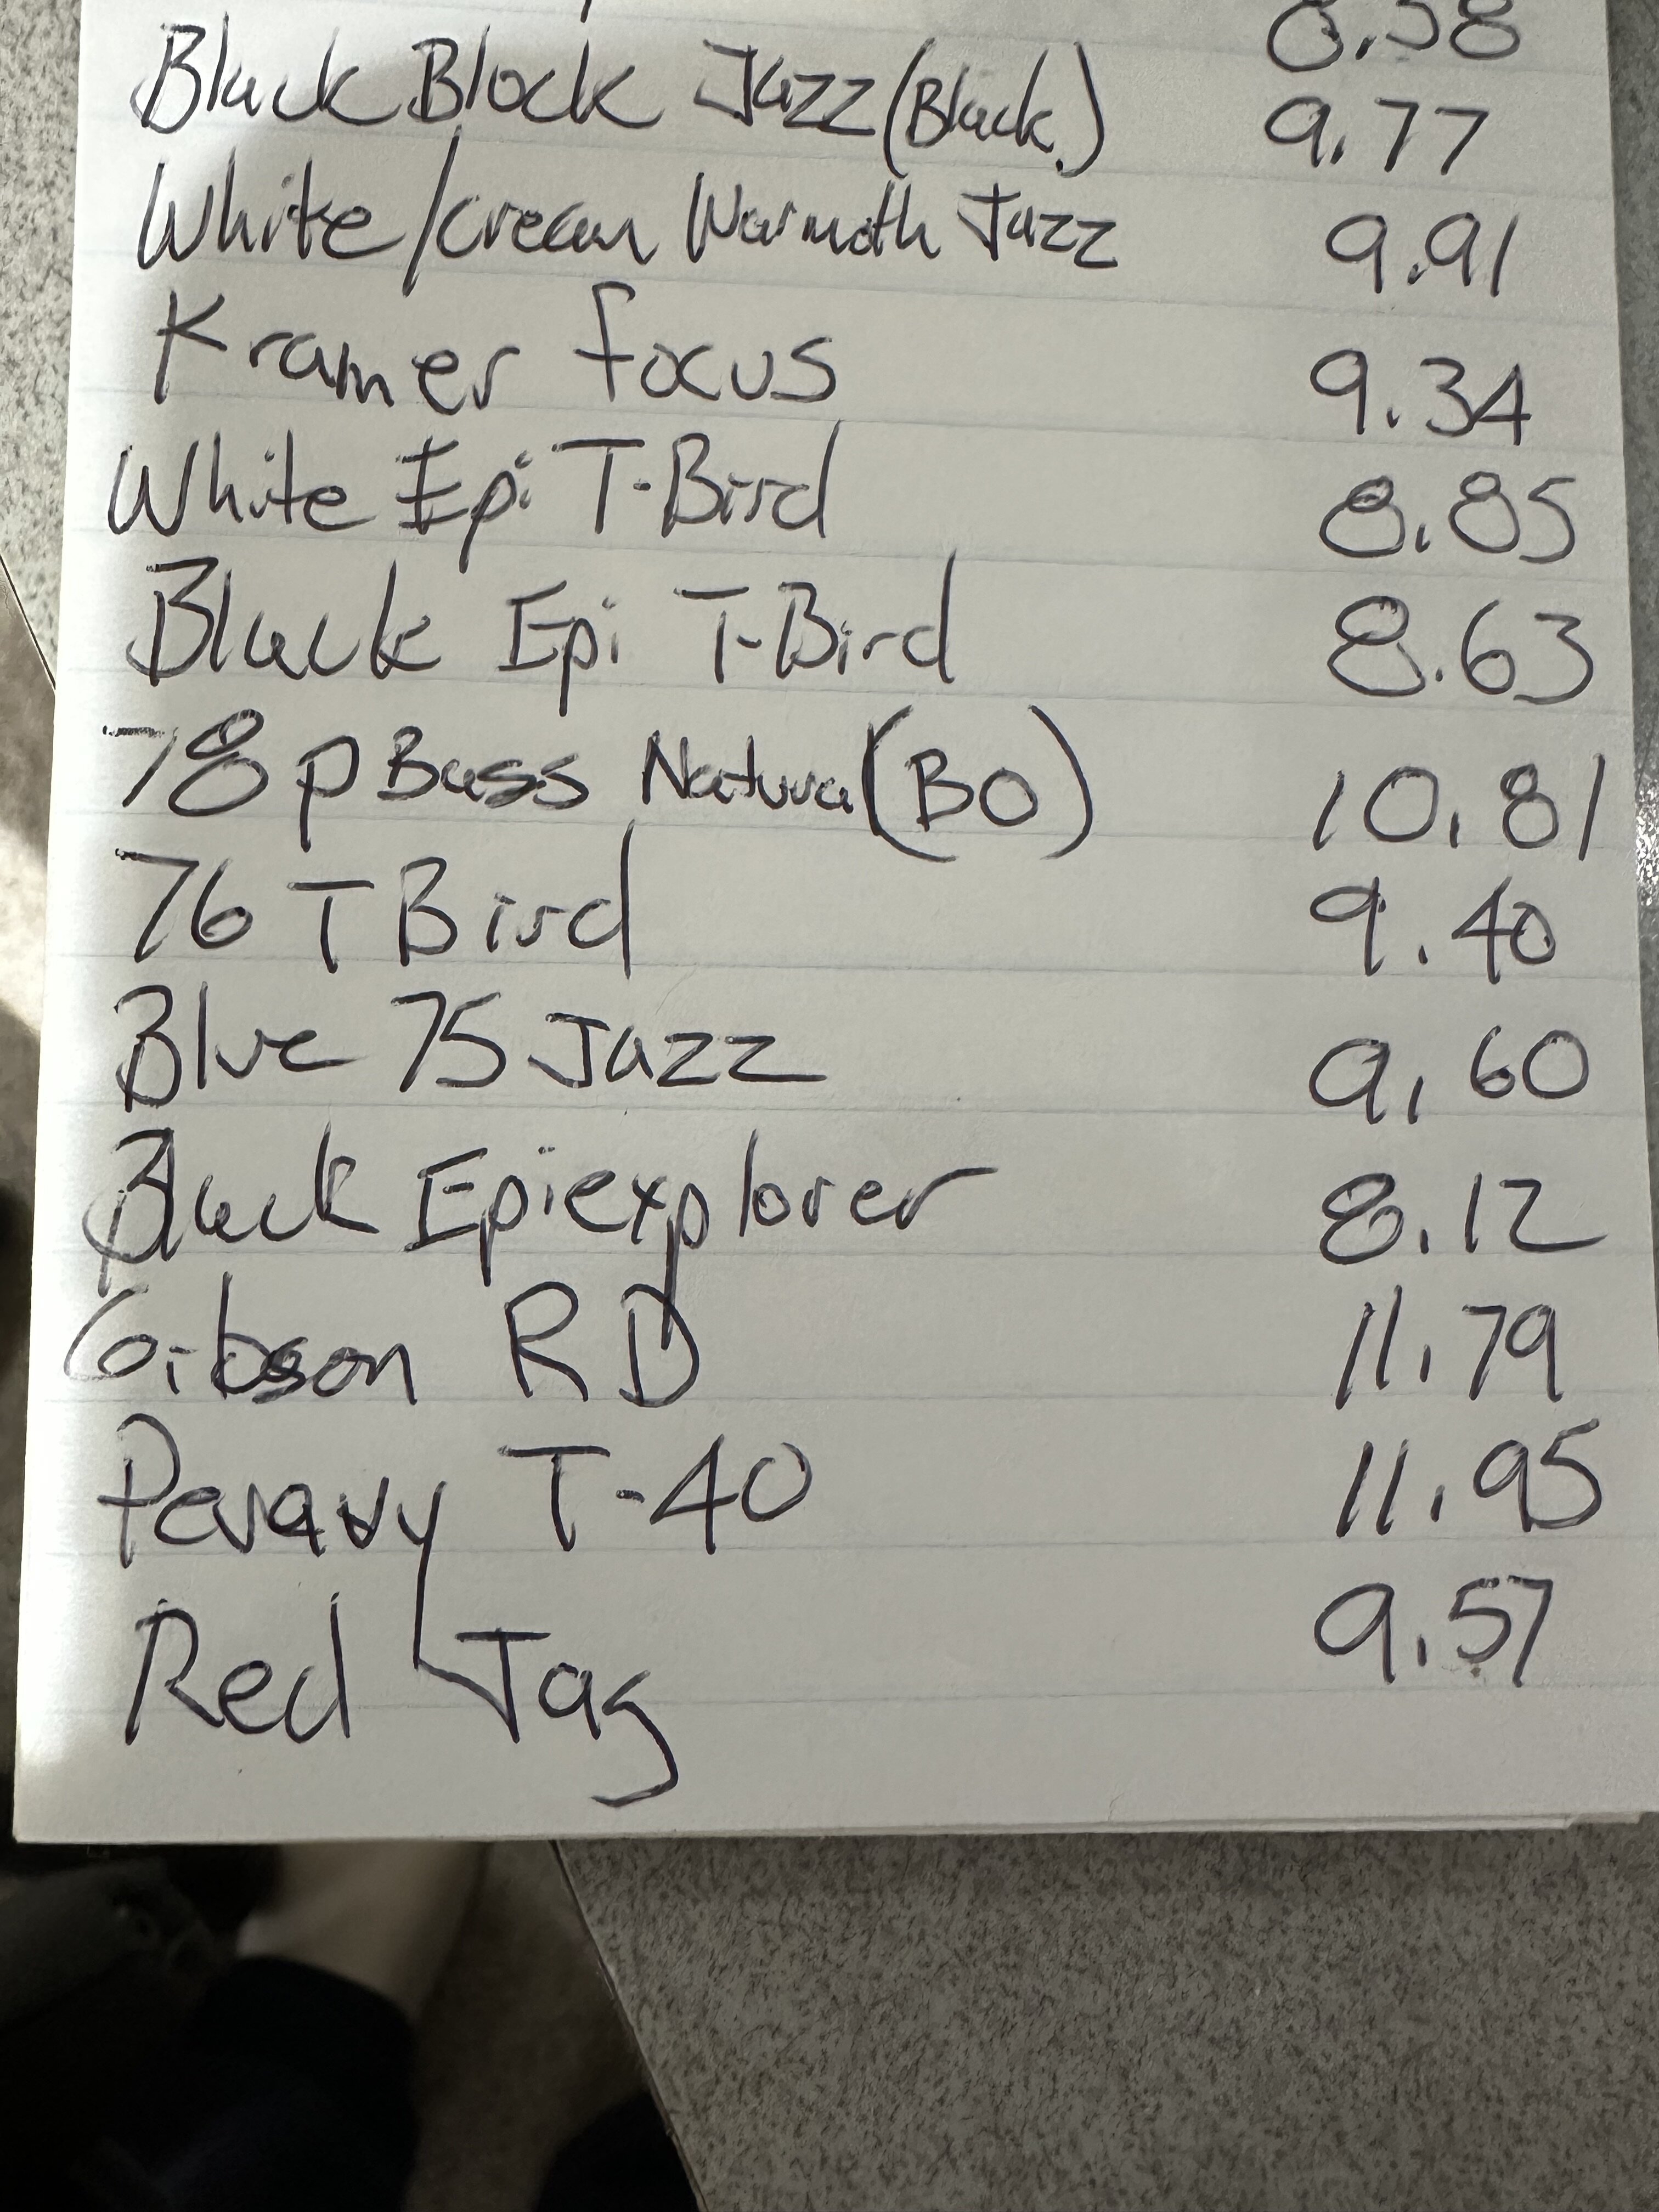 8.58
Black Block Jazz (Black) 9.77
White/cream Warmoth Jazz 9.91
Kramer focus 9.34
White Epi T-Bird 8.85
Black Epi T-Bird 8.63
78 P Bass Natura (BO) 10.81
76 T Bird 9.40
Blue 75 Jazz 9.60
Black Epi explorer 8.12
Gibson RD 11.79
Pevavy T-40 11.95
Red Tag 9.57